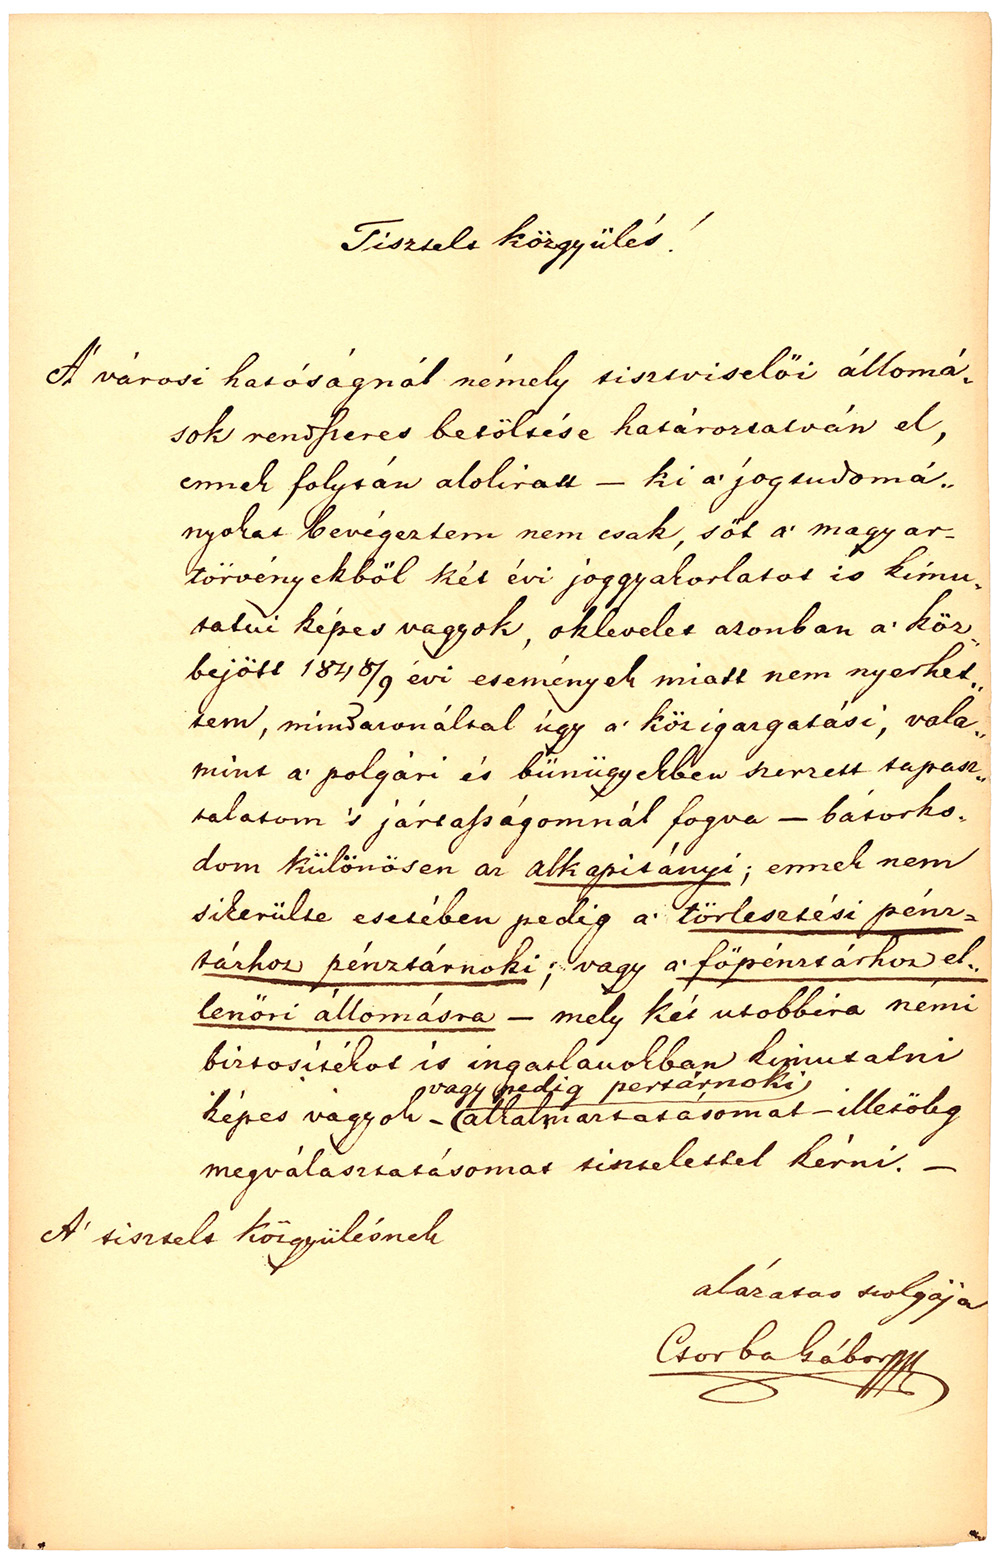 Tisztelt közgyülés!
A' városi hatóságnál némely tisztviselői állomá-
sok rendszeres betöltése határoztatván el,
ennek folytán aloliratt – ki a' jogtudomá-
nyokat bevégeztem nem csak, sőt a' magyar-
törvényekből két évi joggyakorlatot is kimu-
tatni képes vagyok, oklevelet azonban a' köz-
bejött 1848/9 évi események miatt nem nyerhet-
tem, mindazonáltal úgy a' közigazgatási, vala-
mint a' polgári és bünügyekben szerzett tapasz-
talatom 's jártasságomnál fogva – bátorko-
dom különösen az alkapitányi; ennek nem
sikerülte esetében pedig a' törlesztési pénz-
tárhoz pénztárnoki; vagy a' főpénztárhoz el-
lenőri állomásra – mely két utobbira némi
biztosítékot is ingatlanokban kimutatni
vagy pedig pertárnoki
képes vagyok – (alkalmaztatásomat – illetőleg
megválasztatásomat tisztelettel kérni. –
A' tisztelt közgyülésnek
alázatos szolgája
Csorba Gábor